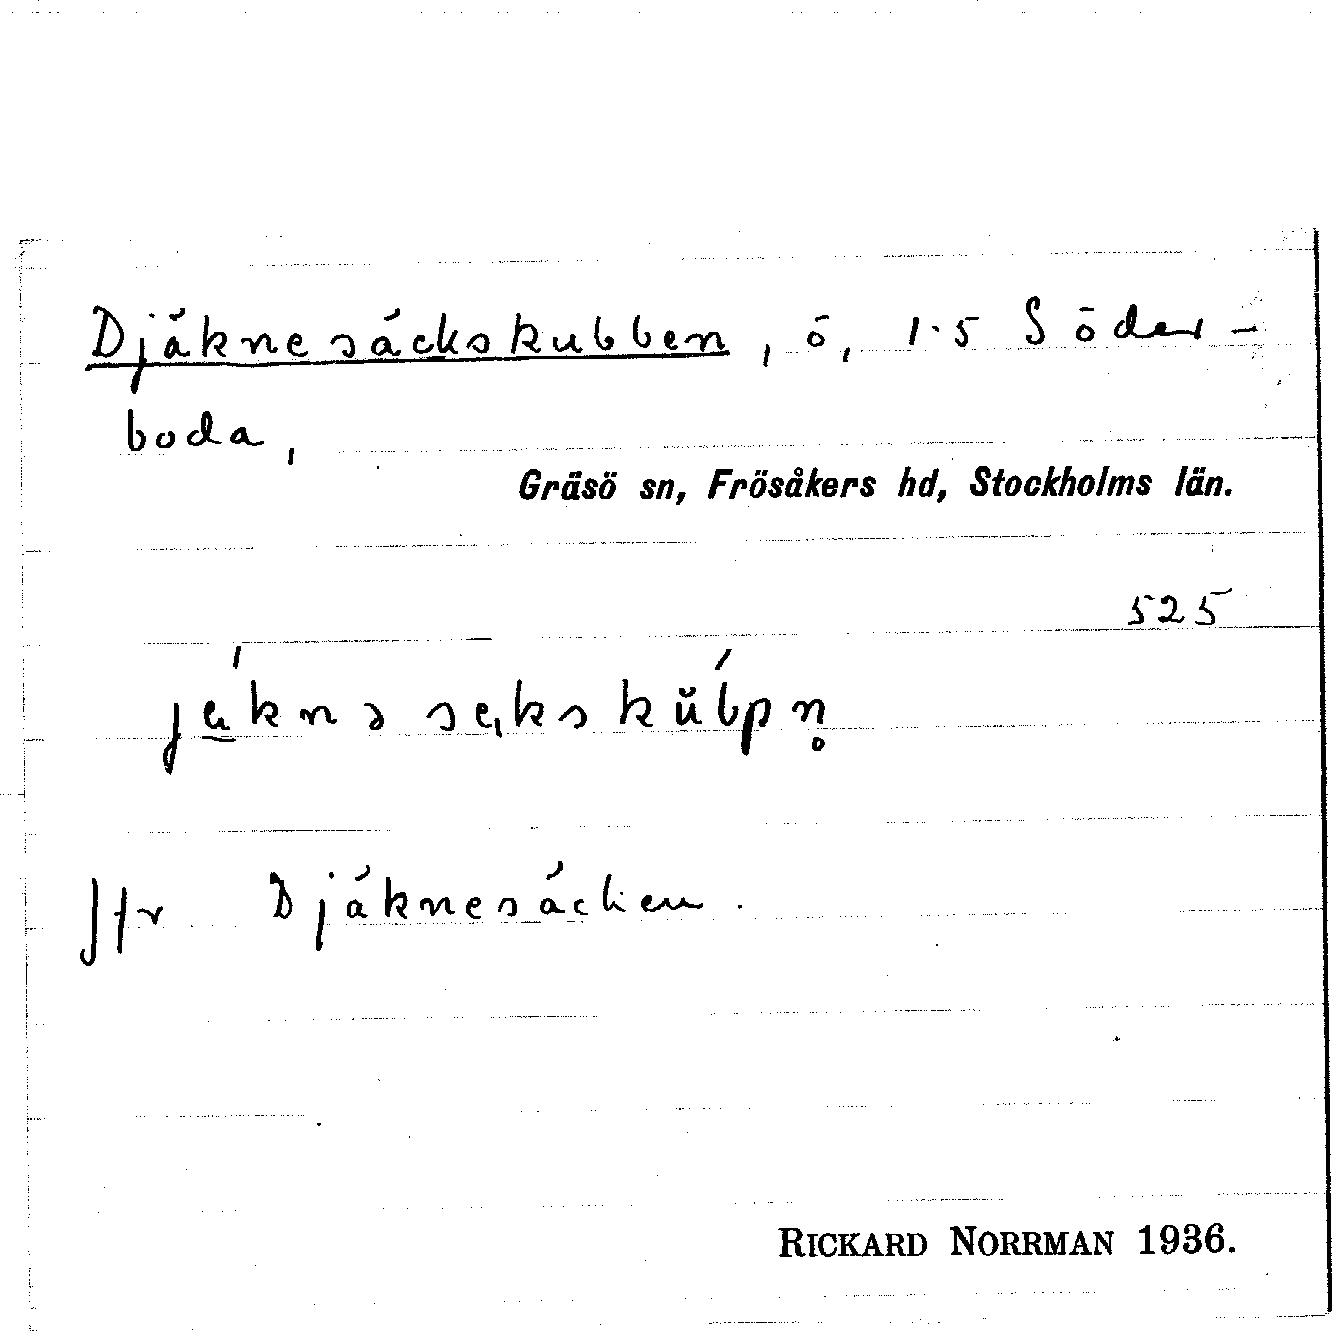 Djäknesäckskubben, ö, 1·5 Söder-
boda,
Gräsö sn, Frösåkers hd, Stockholms län.
525
Jfr Djäknesäcken.
RICKARD NORRMAN 1936.